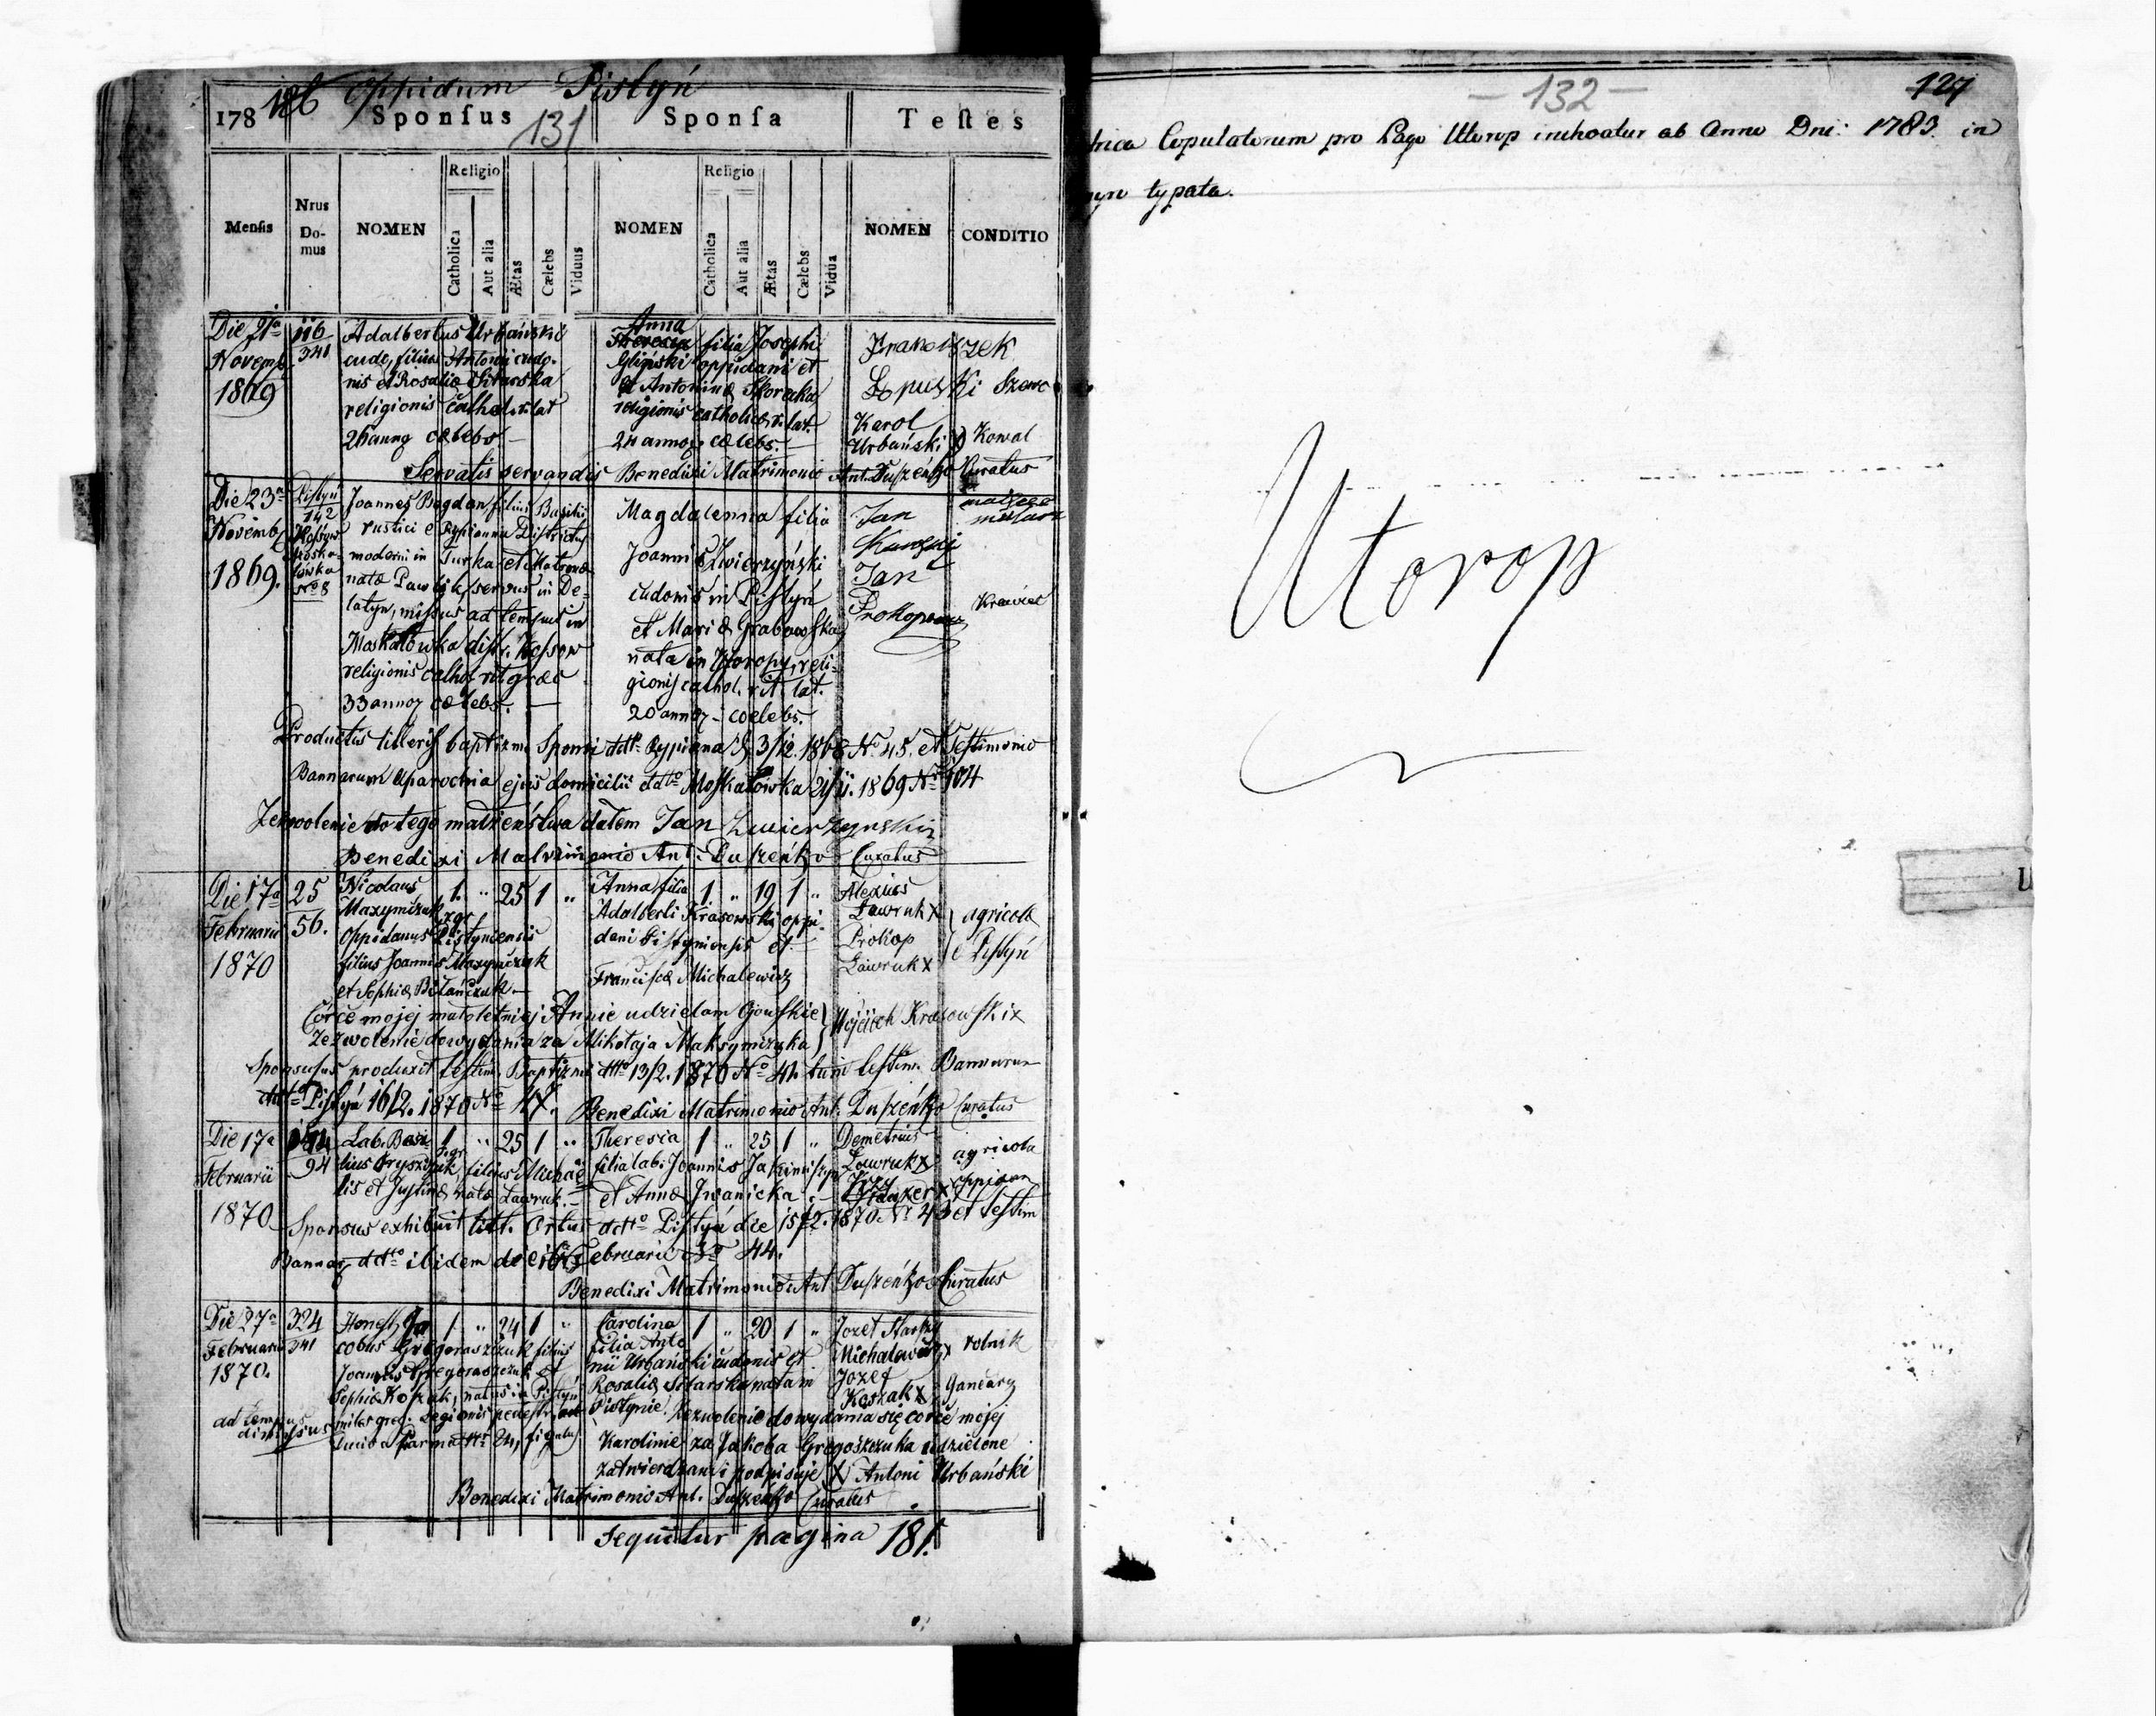 126 Oppidum Pistyń
178 Sponsus 131 Sponsa Testes
Mensis Nrus Domus NOMEN Religio Catholica Aut alia Ætas Cælebs Viduus NOMEN Religio Catholica Aut alia Ætas Cælebs Vidua NOMEN CONDITIO
Die 21a Novemb. 1869
116
341
Adalbertus Urbański
cudo, filius Antonii cudo-
nis et Rosaliæ Sitarska
religionis cathol. rit. lat
26 annoz cælebs
Anna
Theresia filia Josephi
Gliński oppidani et
et Antoninæ Skorecka
religionis catholicæ r. lat.
24 annoz cælebs.
Franciszek
Łpuski Szewc
Karol
Urbański X Kowal
Servatis servandis Benedixi Matrimonio Ant. Duszeńko Curatus
Die 23a Novemb. 1869.
Pistyń
142
No 8
Joannes Bogdan filius Basilii
rustici e Rypianna Districtus
moderni in Turka et Matronæ
natæ Pawlik, servus in De-
latyn, missus ad tempus in
Moskalowka distr. Kossow
religionis cathol. rit græc
33 annoz cælebs.
Magdalenna filia
Joannis Zwierzyński
cudonis in Pistyń
et Mariæ Grabowska
nata in Utoropy, reli-
gionis cathol. rit. lat.
20 annoz - coelebs.
Jan
Jan
Prokopowicz
Krawiec
Productis litteris baptismi Sponsi ddto Rypiana d. 3/12. 1868 No 45. et Testimonio
Bannorum a parochia ejus domicilii ddto Moskalowka 21/11. 1869 Nr 104
Zezwolenie do tego małżeństwa dałem Jan Zwierzynski
Benedixi Matrimonio Ant. Duszeńko Curatus
Die 17a Februarii 1870
25
56.
Nicolaus 1 " 25 1 "
Maxymczuk r. gr.
oppidanus Pistyniensis
filius Joannis Maxymczuk
et Sophiæ Bilańczuk
Anna filia 1 " 19 1 "
Adalberti Krasowski oppi-
dani Pistyniensis et
Franciscæ Michalewicz
Alexius
Ławruk X
Prokop
Ławruk X
agricolæ
e Pistyń
Córce mojej małoletniej Annie udzielam Ojcowskie
zezwolenie do wydania za Mikołaja Maksymczuka
Wojciech Krasowski x
Sponsus produxit testim. Baptismi ddto 13/2. 1870 No 41. tum testim. Bannorum
ddto Pistyń 16/2. 1870 No 47. Benedixi Matrimonio Ant. Duszeńko Curatus
Die 17a Februarii 1870
94
Lab. Basi 1 " 25 1 "
lius Gryszczuk, filius Michaë
lis et Justinæ natæ Ławruk.
Theresia 1 " 25 1 "
filia lab. Joannis Jakimiszyn
et Annæ Iwanicka.
Demetrius
Ławruk X
agricola
oppidan
Sponsus exhibuit litt. Ortus ddto Pistyń die 15/2. 1870. Nr 43 et testim
Bannoz ddto ibidem die 16 Februarii No 44.
Benedixi Matrimonio Ant. Duszeńko Curatus
Die 27a Februarii 1870.
324
341
Honest. Ja 1 " 24 1 "
cobus Gregoraszczuk filius
Joannis Gregoraszczuk et
Sophiæ Kozak, natus in Pistyń
miles greg. Legionis pedestr.
ad tempus dimissus
Carolina 1 " 20 1 "
filia Anto
nii Urbański cudonis et
Rosaliæ Sitarska nata in
Pistynie.
Jozef
Michalewicz x rolnik
Jozef
Kozak x Gancarz
Zezwolenie do wydania się córce mojej
Karolinie za Jakoba Gregoszczuka udzielone
zatwierdzam i podpisuje X Antoni Urbański
Benedixi Matrimonio Ant. Duszeńko Curatus
sequitur pagina 181.
- 132 -
127
trica Copulatorum pro Pago Utorop inchoatur ab Anno Dni: 1783. in
typata.
Utorop